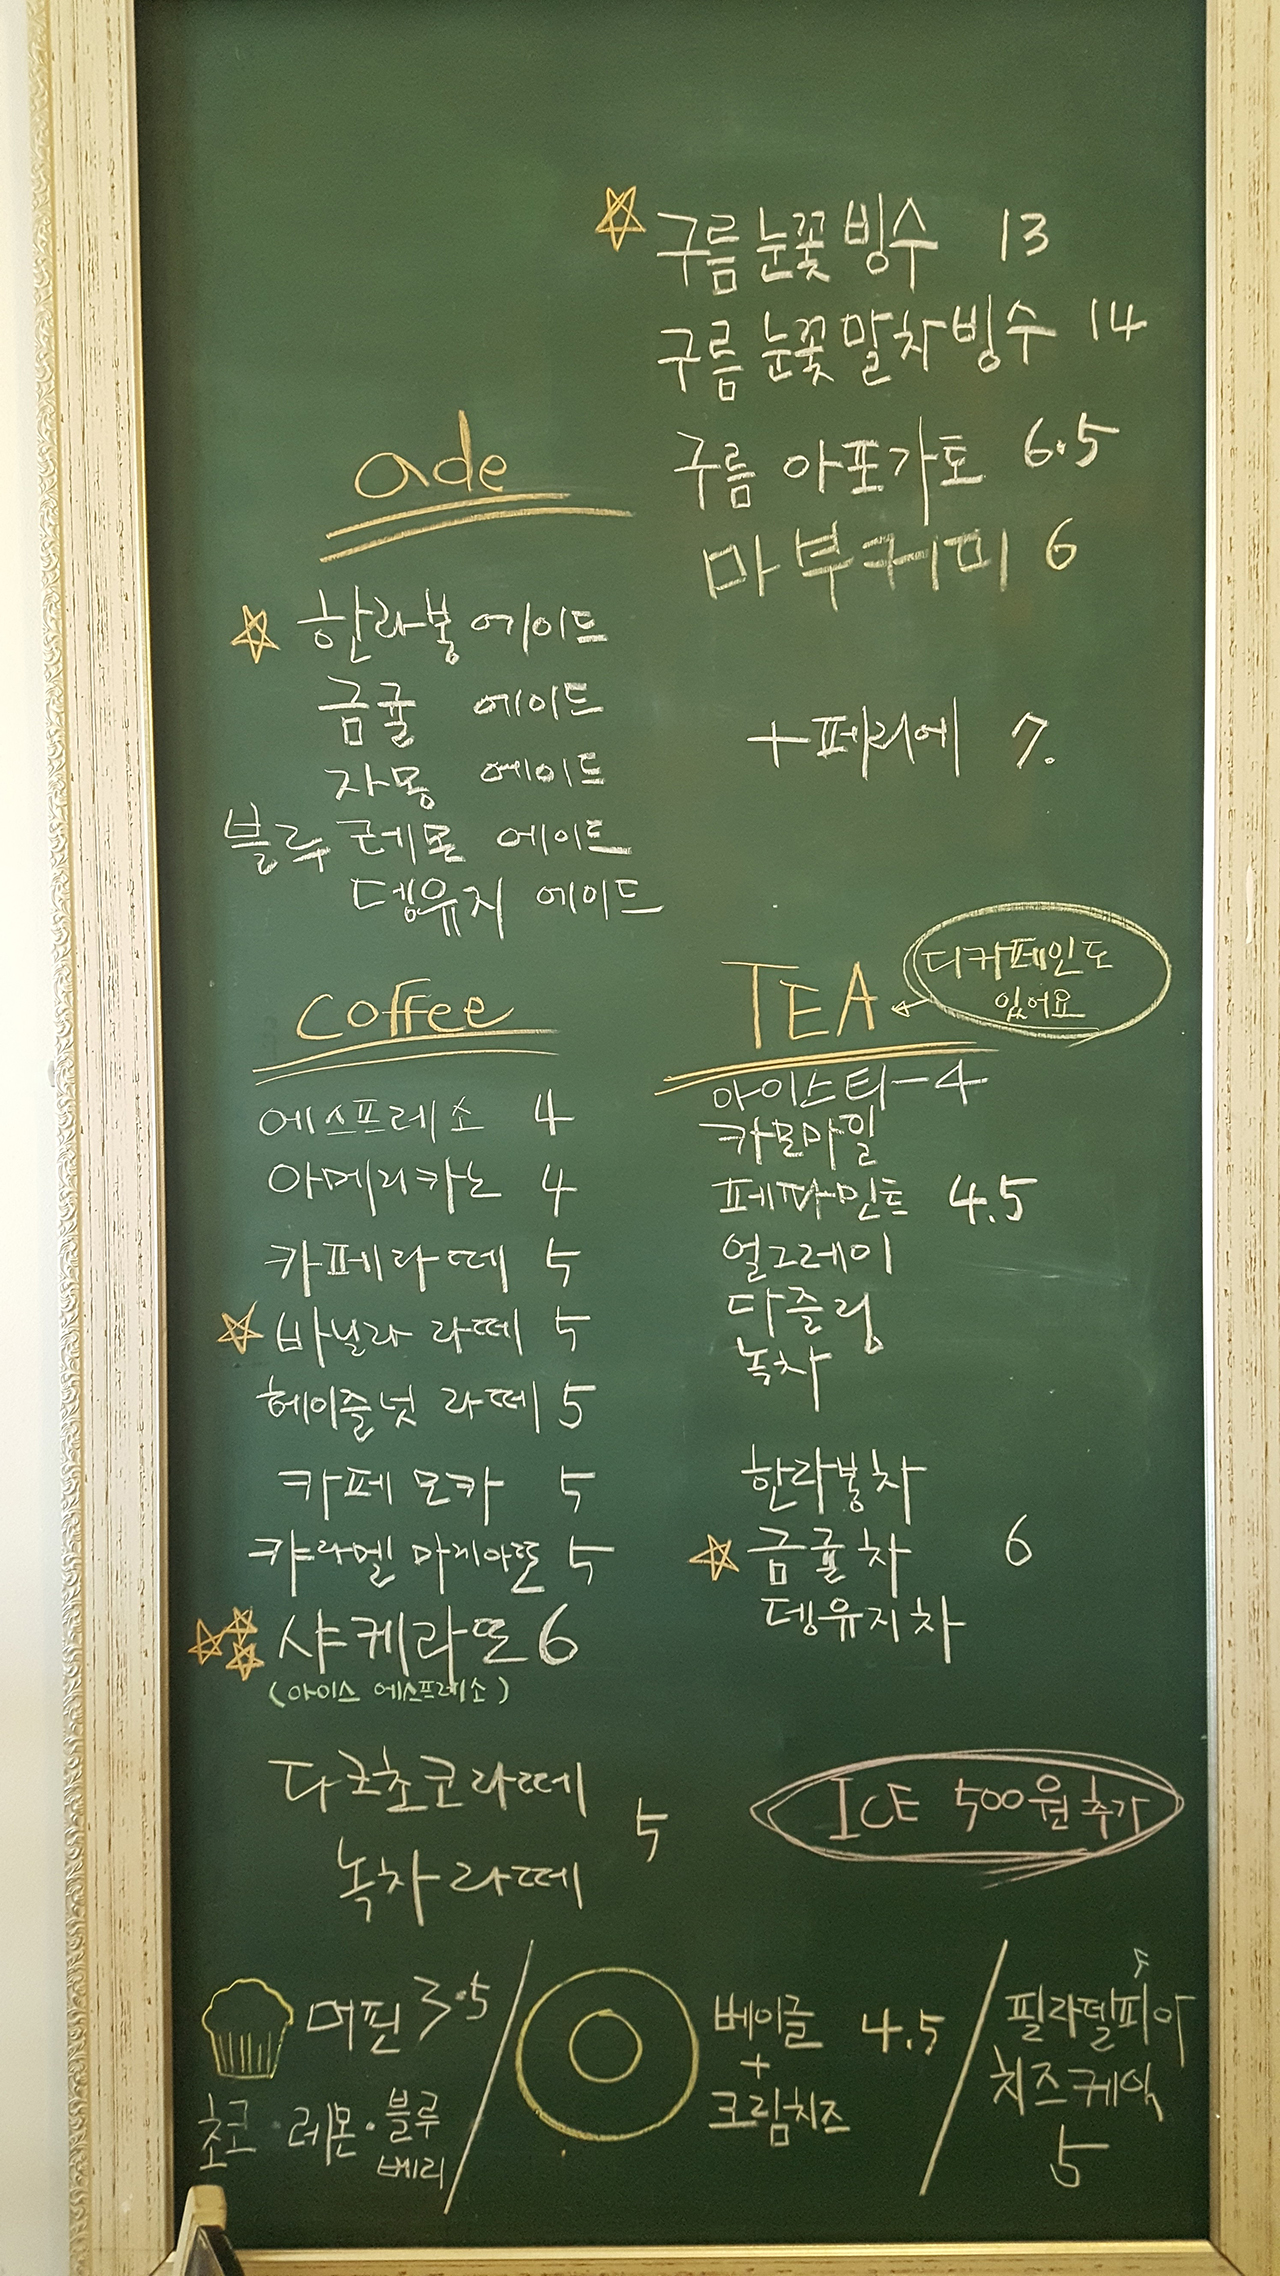 구름 눈꽃 빙수 13
구름 눈꽃 말차빙수 14
구름 아포가토 6.5
마부커피 6
ade
한라봉 에이드
금귤 에이드
자몽 에이드
블루 레몬 에이드
뎅유지 에이드
+페리에 7.
coffee
에스프레소 4
아메리카노 4
카페라떼 5
바닐라 라떼 5
헤이즐넛 라떼 5
카페 모카 5
캬라멜 마끼아또 5
샤케라또 6
(아이스 에스프레소)
다크초코라떼
녹차라떼
5
TEA
디카페인도
있어요
아이스티-4
카모마일
페파민트 4.5
얼그레이
다즐링
녹차
한라봉차
금귤차 6
뎅유지차
ICE 500원 추가
머핀 3.5
초코·레몬·블루
베리
베이글 4.5
+
크림치즈
필라델피아
치즈케잌
5